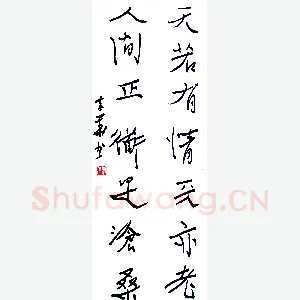 天若有情天亦老
人间正衜是滄桑
书
Shufawang.CN